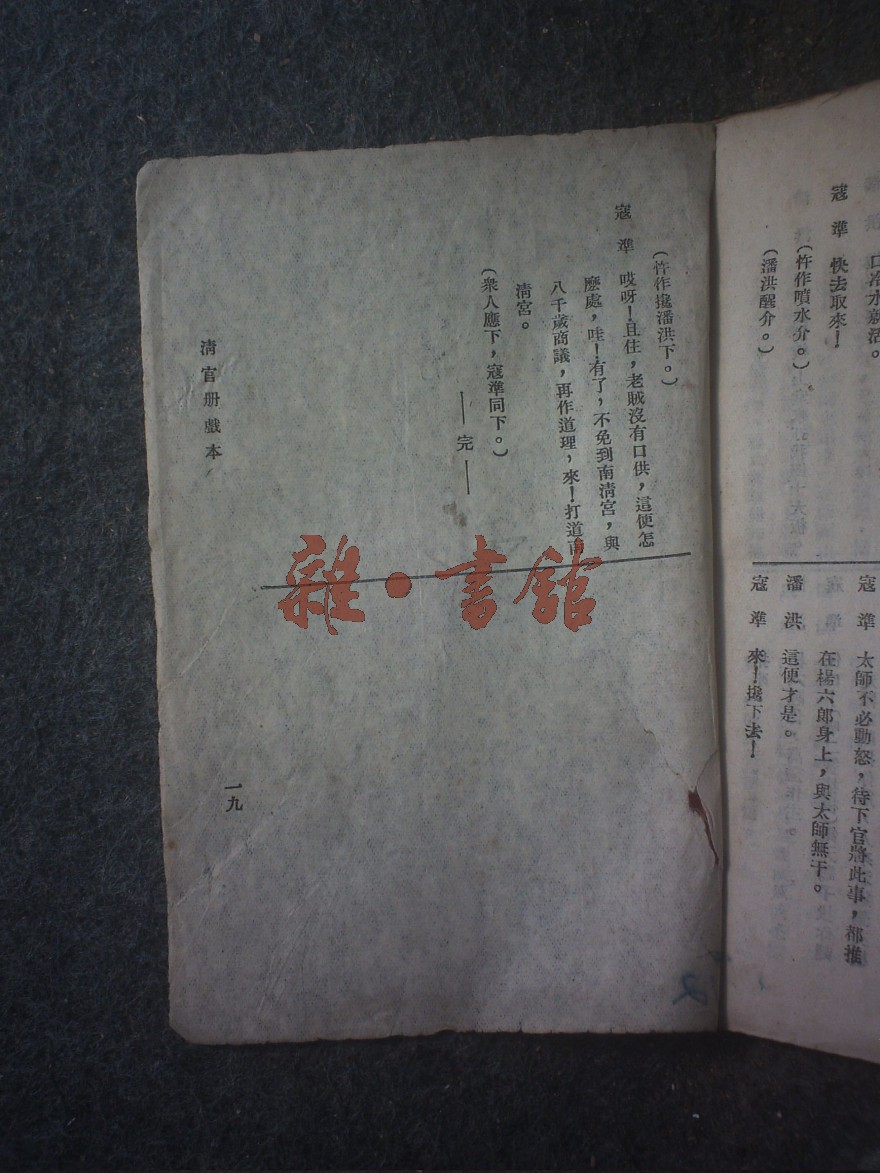 口冷水就活。
寇準　快去取來！
(忤作噴水介。)
(潘洪醒介。)
寇準　太師不必動怒，待下官將此事，都推
在楊六郎身上，與太師無干。
潘洪　這便才是。
寇準　來！攙下去！
(忤作攙潘洪下。)
寇準　哎呀！且住，老賊沒有口供，這便怎
麼處，哇！有了，不免到南清宮，與
八千歲商議，再作道理，來！打道南
清宮。
(衆人應下，寇準同下。)
——完——
清官册戲本
一九
雜·書館